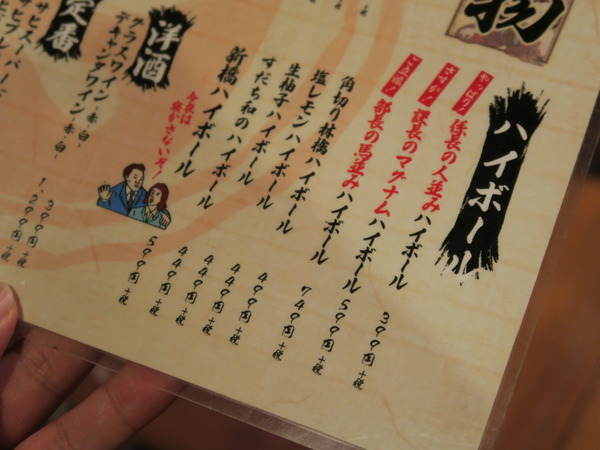 物
ハイボール
やっぱり! 係長の人並みハイボール 399円+税
さすが! 課長のマグナムハイボール 599円+税
ご立派! 部長の馬並みハイボール 749円+税
角切り林檎ハイボール 499円+税
塩レモンハイボール 449円+税
生柚子ハイボール 449円+税
すだち和のハイボール 449円+税
新橋ハイボール 599円+税
今夜は寝かさないぞ!
洋酒
グラスワイン-赤・白- 399円+税
デキャンタワイン-赤・白- 1,299円+税
定番
サヒスーパード